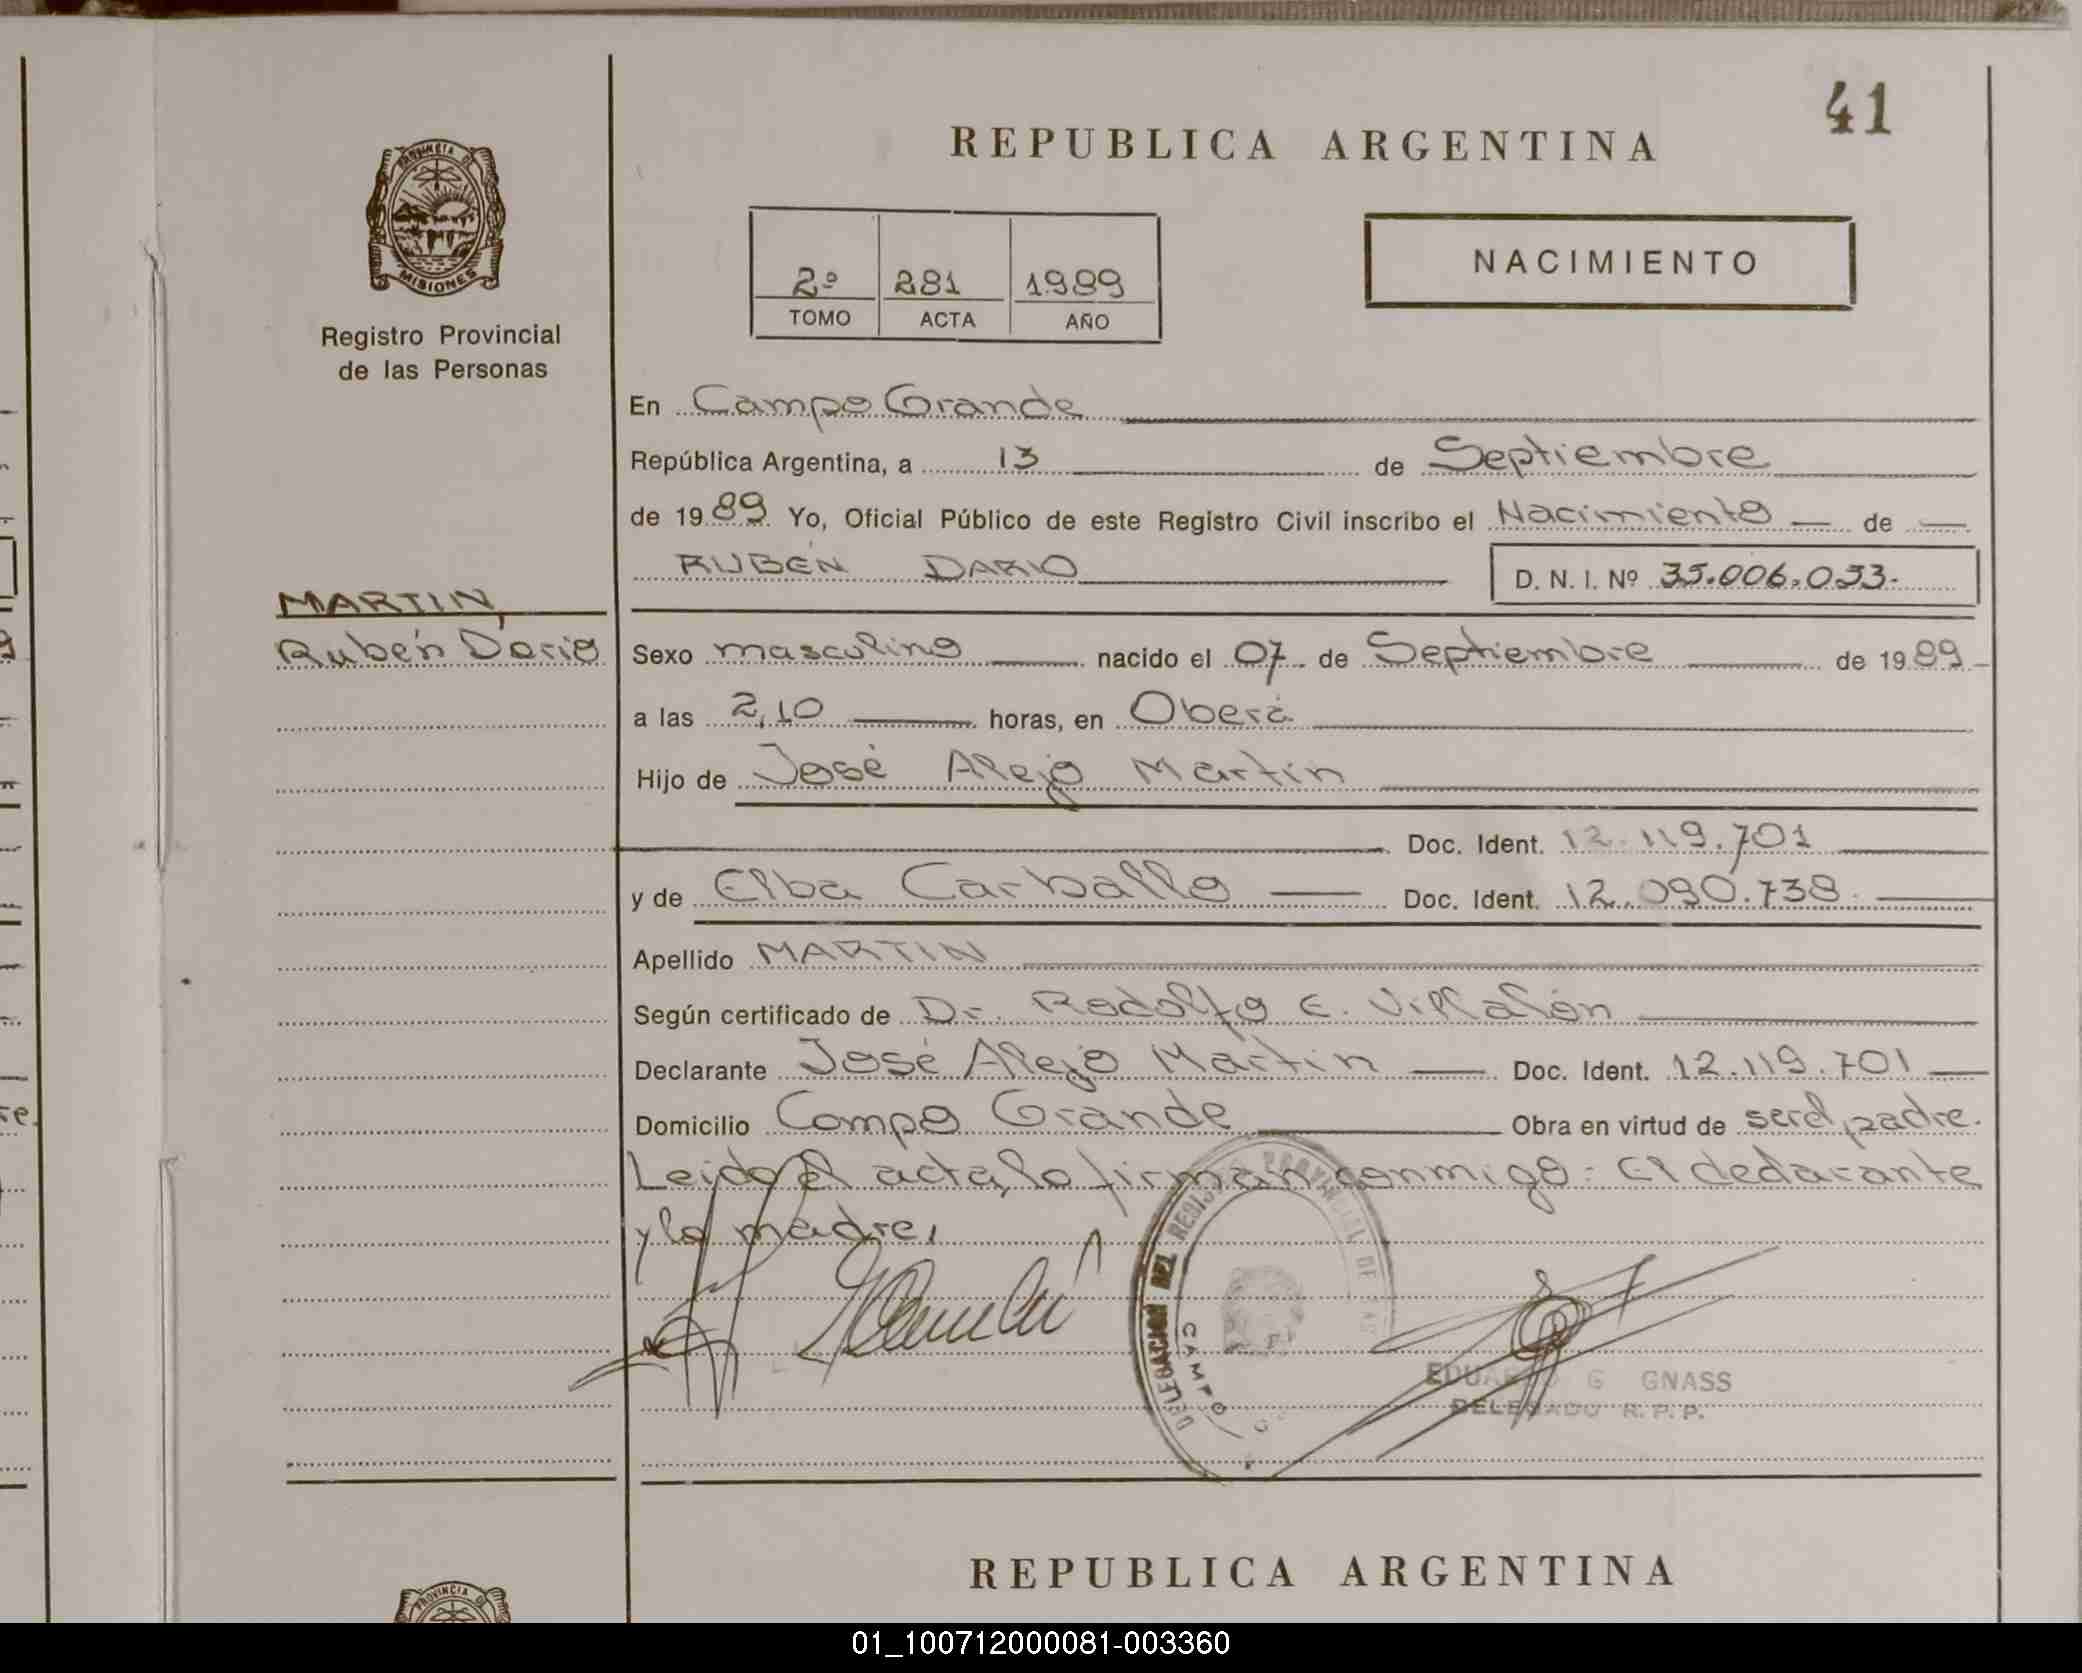 41
REPUBLICA ARGENTINA
PROVINCIA DE
MISIONES
Registro Provincial
de las Personas
2º 281 1989
TOMO ACTA AÑO
NACIMIENTO
En Campo Grande
República Argentina, a 13 de Septiembre
de 1989 Yo, Oficial Público de este Registro Civil inscribo el Nacimiento de
RUBÉN DARIO D. N. I. Nº 35.006.033.-
MARTIN,
Rubén Dario
Sexo masculino nacido el 07 de Septiembre de 1989
a las 2,10 horas, en Oberá
Hijo de José Alejo Martin
Doc. Ident. 12.119.701
y de Elba Carballo Doc. Ident. 12.090.738
Apellido MARTIN
Según certificado de Dr. Rodolfo E. Villalón
Declarante José Alejo Martin Doc. Ident. 12.119.701
Domicilio Campo Grande Obra en virtud de ser el padre.
Leido el acta, lo firman conmigo: El declarante
y la madre,
DELEGACION DEL REGISTRO PROVINCIAL DE
CAMPO
EDUARDO G GNASS
DELEGADO R. P. P.
REPUBLICA ARGENTINA
PROVINCIA
01_100712000081-003360